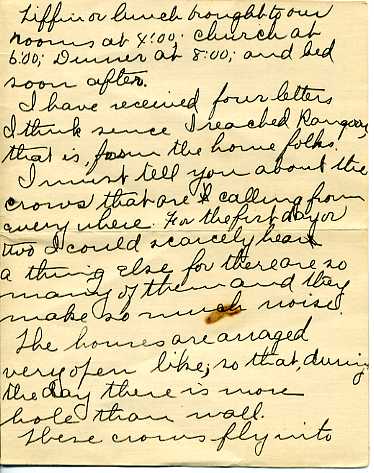 Tiffin or lunch brought to our
rooms at 4:00; church at
6:00; Dinner at 8:00; and bed
soon after.
I have received four letters
I think sence I reached Rangoon,
that is, from the home folks.
I must tell you about the
crows that are calling from
every where. For the first day or
two I could scarcely hear
a thing else for there are so
many of them and they
make so much noise.
The houses are arraged
very open like; so that, during
the day there is more
hole than wall.
These crows fly into